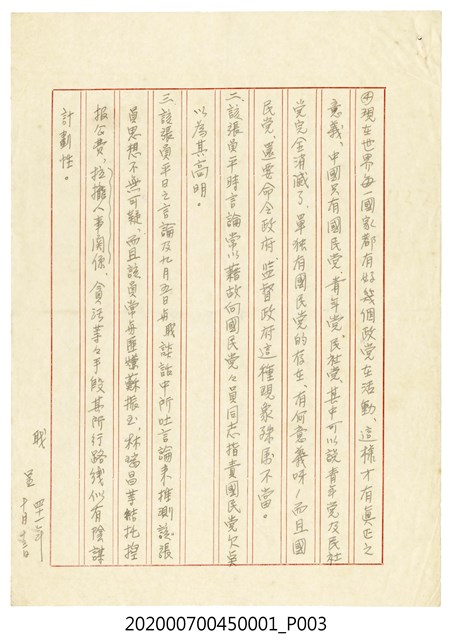 ④現在世界每一國家都有好幾個政党在活動、這樣才有真正之
意義、中國只有國民党、青年党、民社党、其中可以說青年党及民社
党完全消滅了、單独有國民党的存在、有何意義呀！而且國
民党、還要命令政府、监督政府這種現象殊屬不當。
二、該張員平時言論常以藉故向國民党々員同志指責國民党欠
以為其高明。
三、該張員平日之言論及九月五日与職談話中所吐言論來推測該張
員思想不無可疑、而且該員常与 蘇振玉、林瑞昌等結托
报公費、拉攏人事關係、貪污等々手段其所行路线似有陰謀
計劃性。
職
呈
四十一年
十月 日
202000700450001_P003